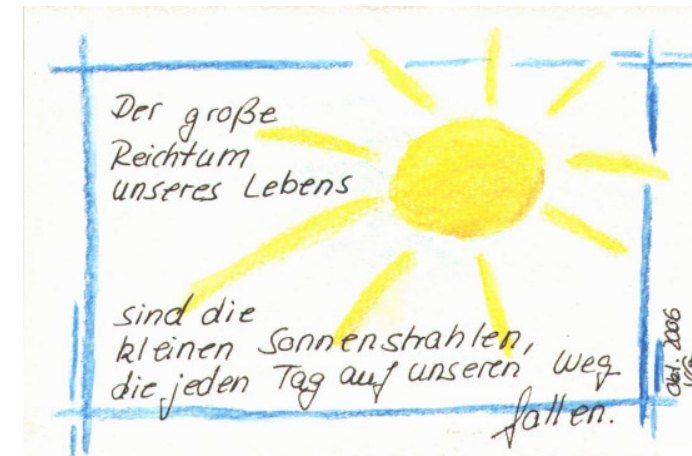 Der große
Reichtum
unseres Lebens
sind die
kleinen Sonnenstrahlen,
die jeden Tag auf unseren Weg
fallen.
Okt. 2006